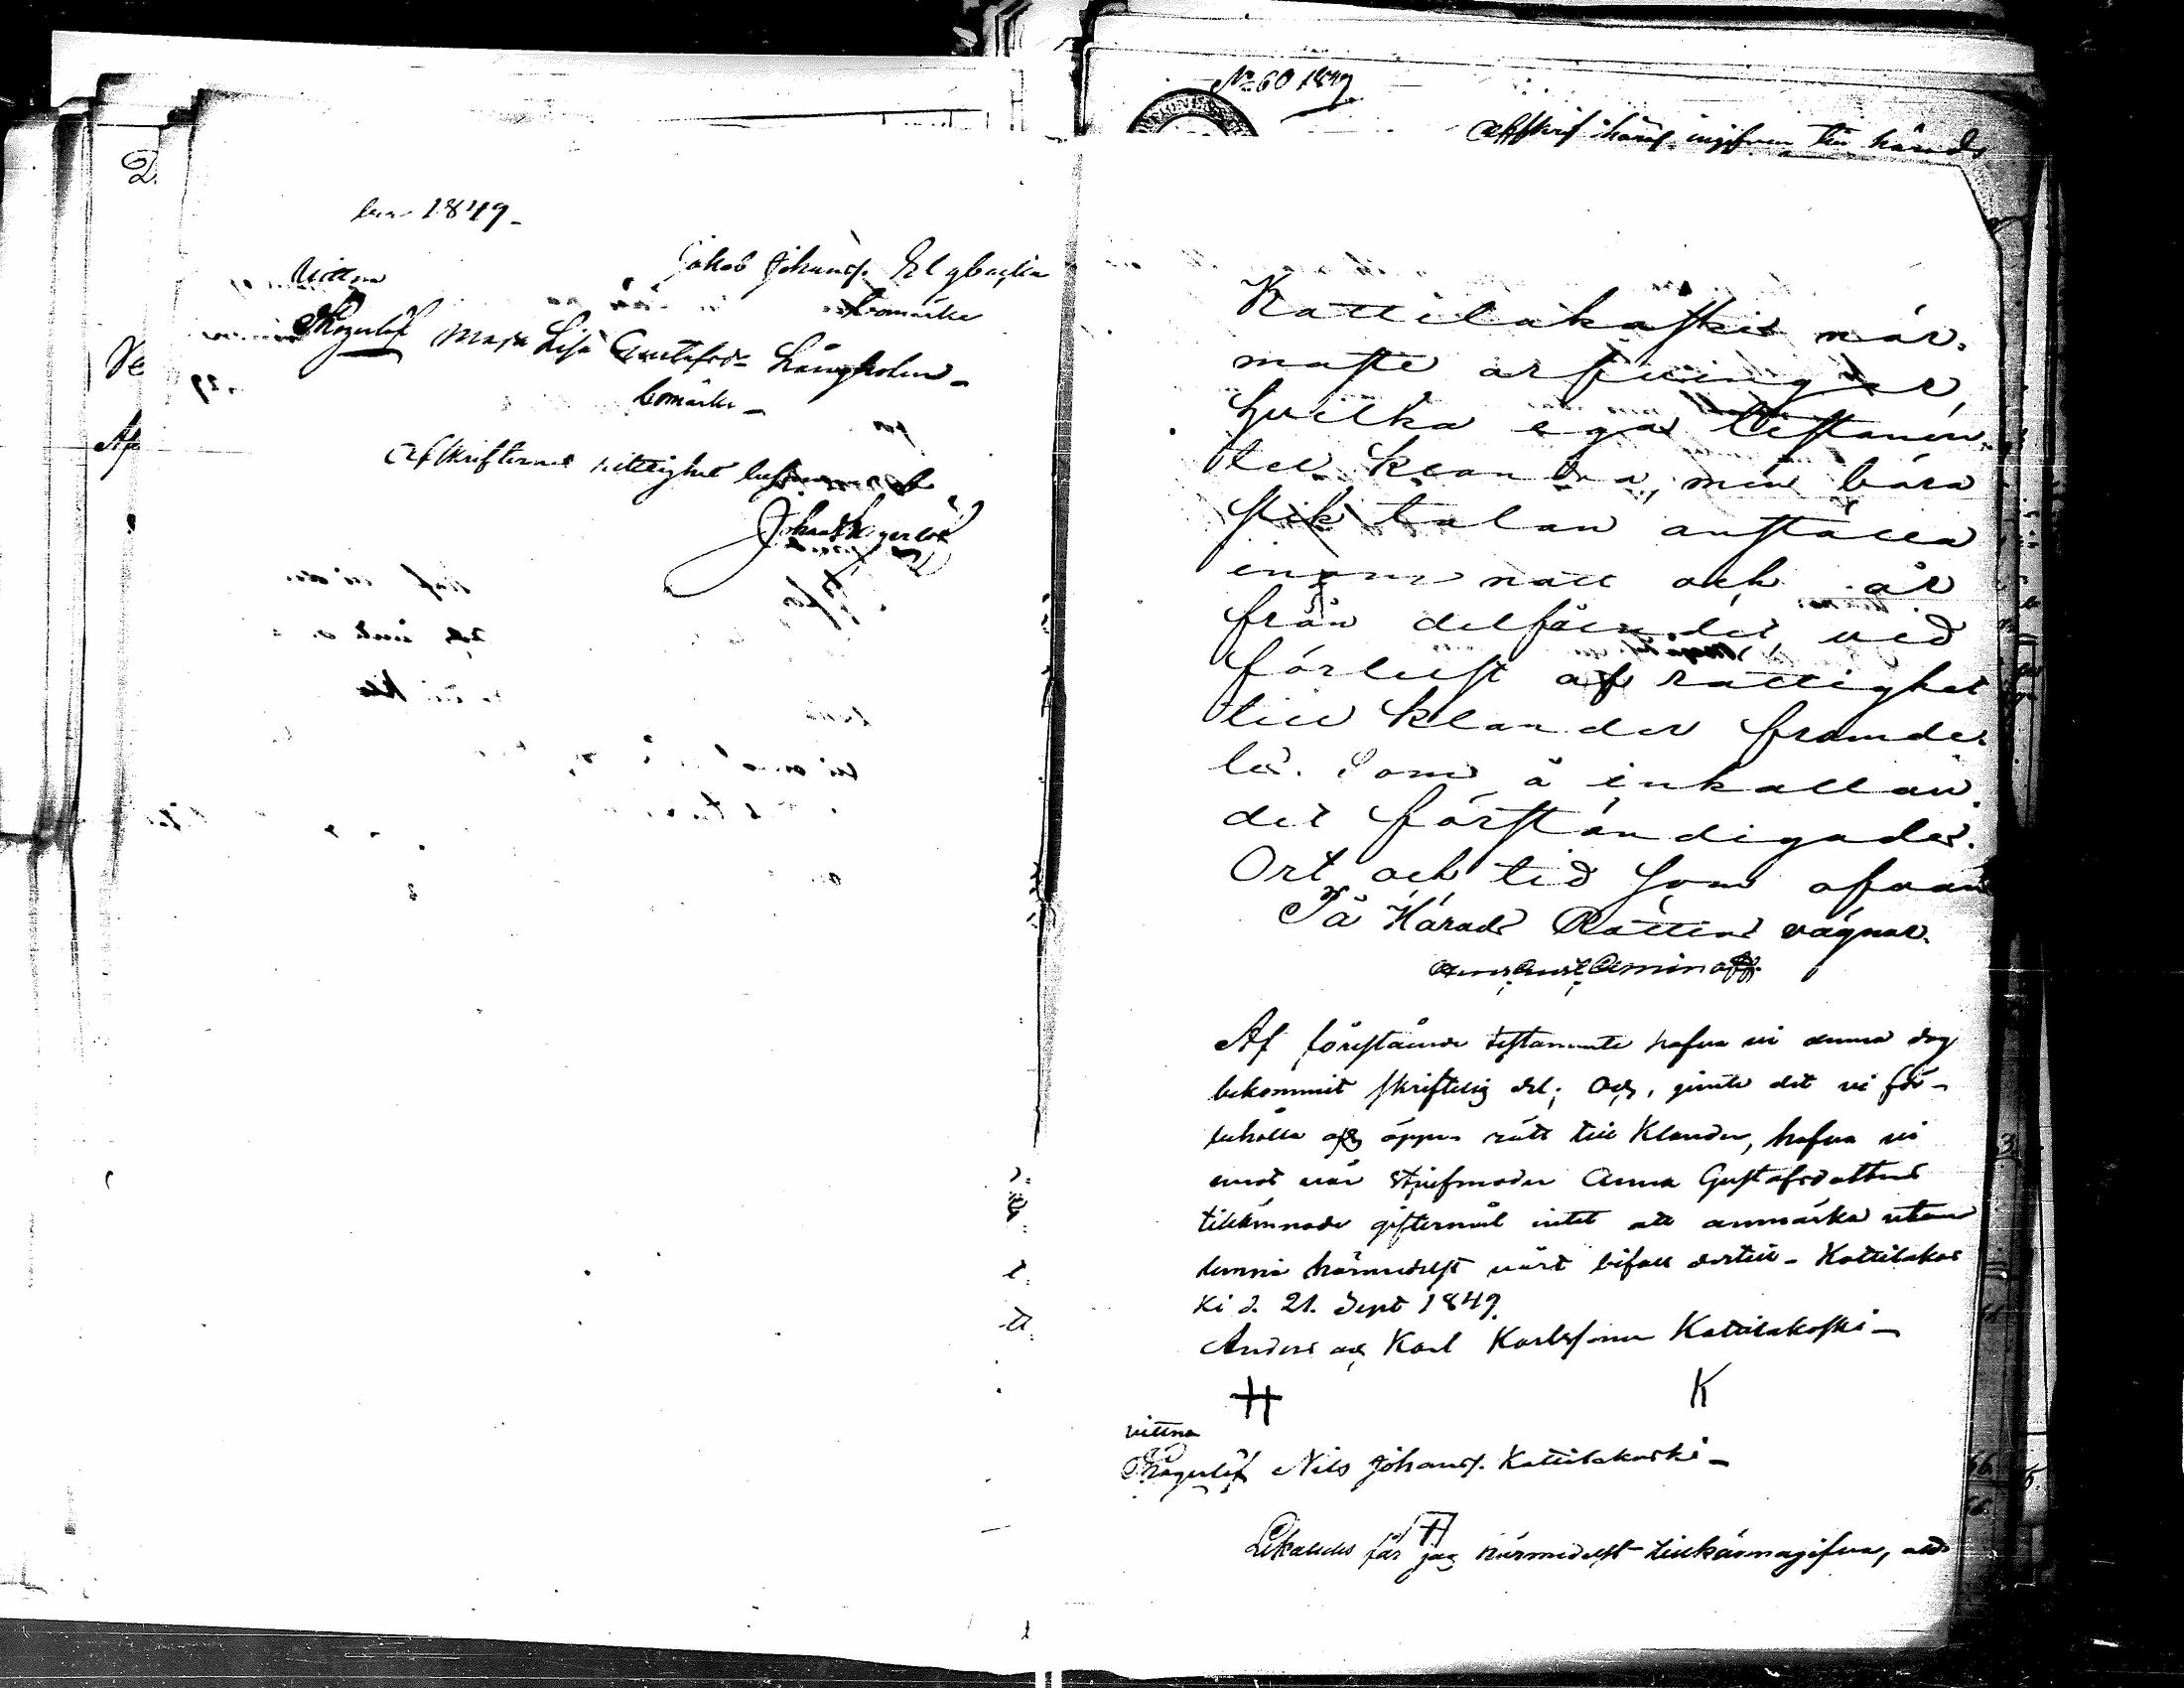 1849.
Vittna
Jakob Johans.
bomärke
Skogerlöf Maja Lisa Gustafsd. Långholm
bomärke
Afskrifternes riktighet
Johan Skogerlöf
No 60 1849
Afskrif häraf ingifven till härads
Kattilakoski när-
maste arfvingar,
hvilka ega testamen-
tet klandra, men böra
slik talan anställa
inom natt och år
från delfåendet, vid
förlust af rättighet
till klander framde-
les. Som å inkallan
det förständigades.
Ort och tid som ofvan
På Härads Rättens vägnar.
Aminoff.
Af förestående testamente hafva vi denna dag
bekommit skriftelig del; och, jemte det vi för-
behålla oss öppen rätt till Klander, hafva vi
emot vår Stjufmoder Anna Gustafsdotters
tillämnade giftermål intet att anmärka utan
lemna härmedelst vårt bifall dertill - Kattilakos
ki d. 21. Sept 1849.
Anders och Karl Karlssöner Kattilakoski -
H K
vittna
Skogerlöf Nils Johans. Kattilakoski -
Likaledes får jag härmedelst tillkännagifva, att